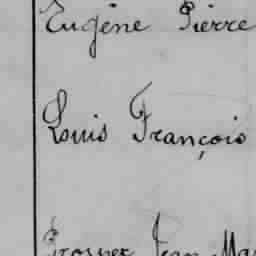 Eugène Pierre
Louis François
Prosper Jean